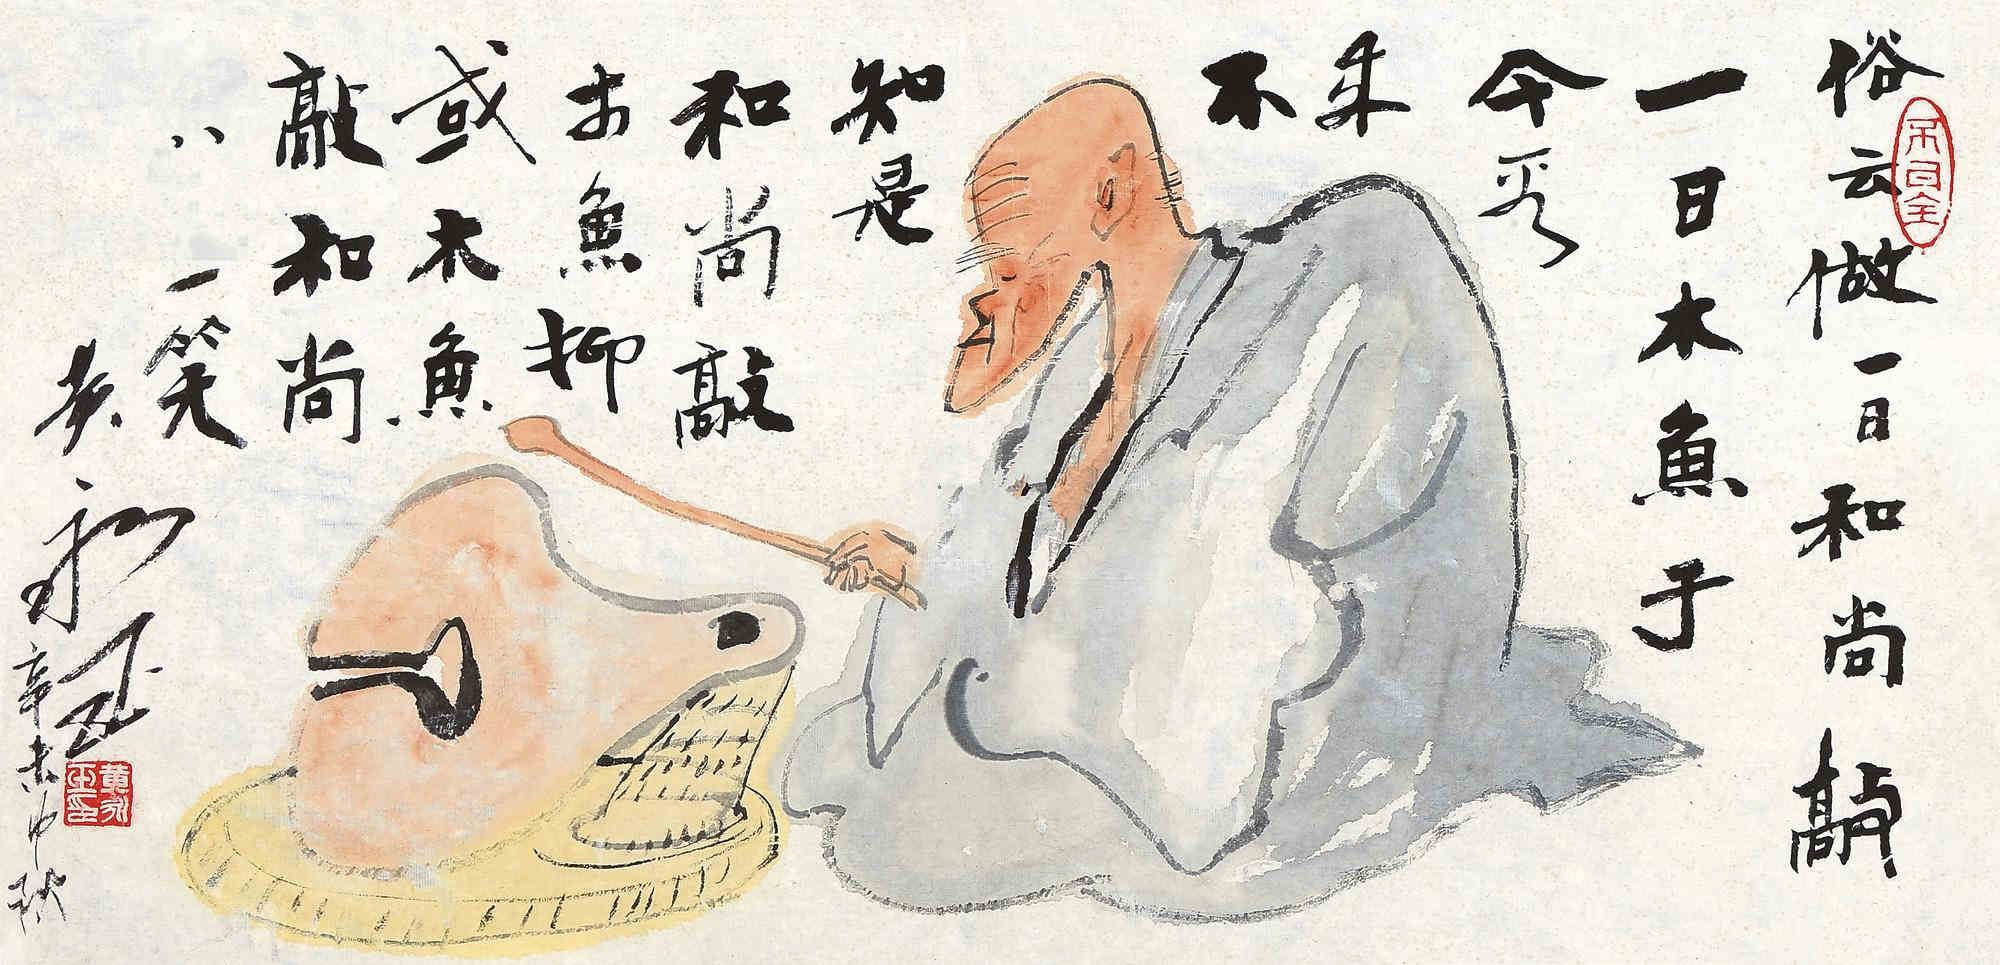 俗云做一日和尚敲
一日木魚于
今看
来
不
知是
和尚敲
木魚抑
或木魚
敲和尚
一笑
黄永玉
辛未中秋
黄永玉印